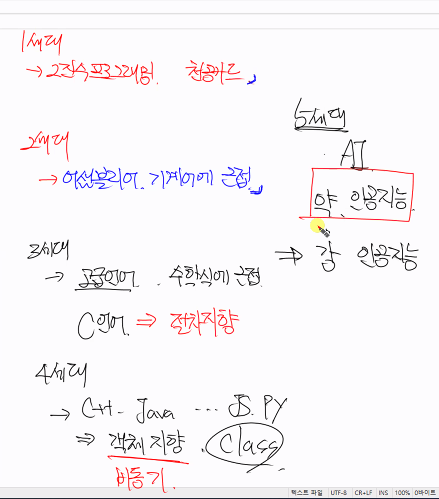 1세대
→ 2진수 프로그래밍. 천공카드
2세대
→ 어셈블리어. 기계어에 근접
3세대
→ 고급언어. 수학식에 근접
C언어 ⇒ 절차지향
4세대
→ C++ - Java ... JS. PY
⇒ 객체지향. Class
비동기.
5세대
AI
약. 인공지능
⇒ 강 인공지능
텍스트 파일 UTF-8 CR+LF INS 100% 0바이트